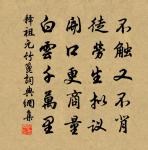 不触又不肖
徒劳生拟议
開口更商量
白雲千萬里
釋祖元竹篦詞典網集